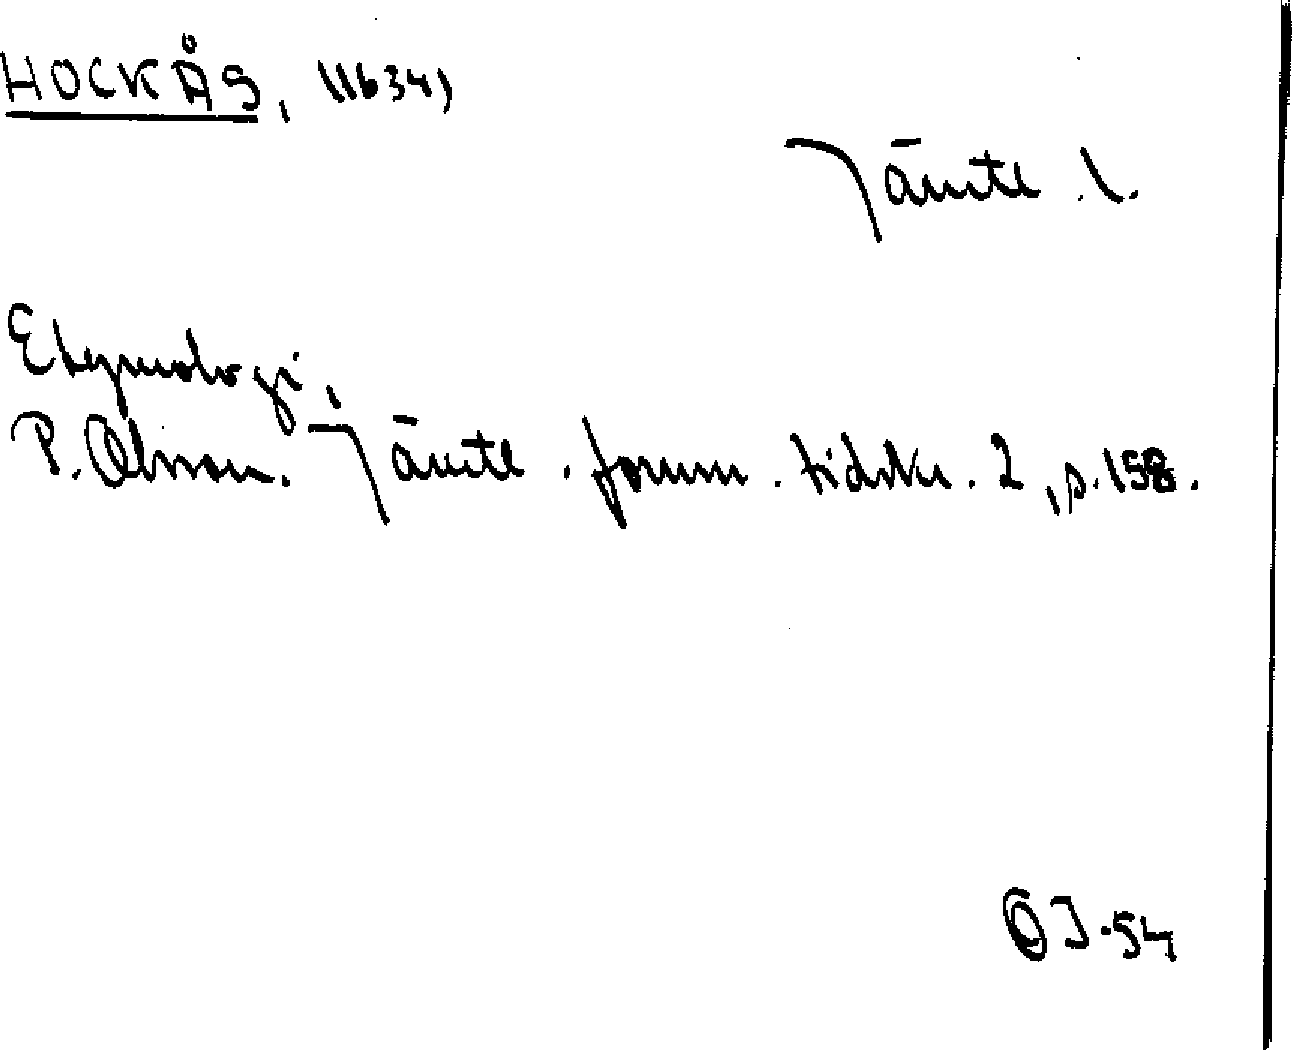 HOCKÅS, (1634)
Jämtl.
Etymologi,
P. Olsson. Jämtl. fornm. tidskr. 2, p. 158.
ÖJ-54